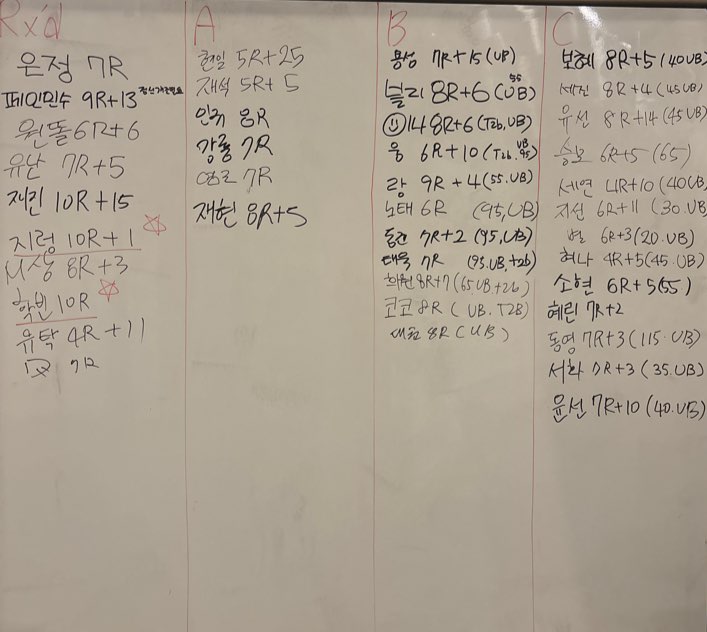 Rx'd
은정 7R
페인민수 9R+13
원똘 6R+6
유난 7R+5
재진 10R+15
지렁 10R+1
상 8R+3
학빈 10R
유탁 4R+11
7R
A
5R+25
재석 5R+5
인쥐 8R
강룡 7R
7R
재현 8R+5
B
용성 7R+15 (UB)
널리 8R+6 (UB) 55
14 8R+6 (T2b, UB)
웅 6R+10 (T2b. UB 95)
랑 9R+4 (55. UB)
노태 6R (95, UB)
동건 7R+2 (95, UB)
대욱 7R (95. UB, +2b)
희원 8R+7 (65 UB+2b)
코코 8R ( UB. T2B)
8R (UB)
C
보혜 8R+5 (40UB)
세진 8R+4 (45UB)
유선 8R+14 (45 UB)
승모 6R+5 (65)
세연 4R+10 (40UB)
지선 6R+11 (30.UB)
별 6R+3 (20.UB)
혜나 4R+5 (45.UB)
소현 6R+5 (55)
혜린 7R+2
동영 7R+3 (115.UB)
서화 7R+3 (35.UB)
윤선 7R+10 (40.UB)